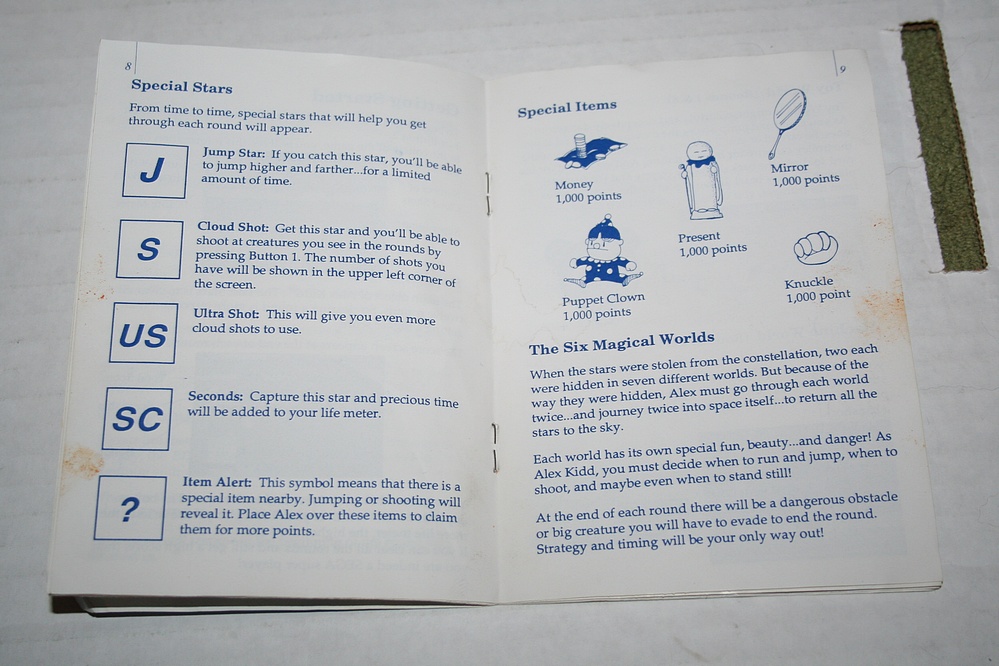 8
Special Stars
From time to time, special stars that will help you get
through each round will appear.
J
Jump Star: If you catch this star, you'll be able
to jump higher and farther...for a limited
amount of time.
S
Cloud Shot: Get this star and you'll be able to
shoot at creatures you see in the rounds by
pressing Button 1. The number of shots you
have will be shown in the upper left corner of
the screen.
US
Ultra Shot: This will give you even more
cloud shots to use.
SC
Seconds: Capture this star and precious time
will be added to your life meter.
?
Item Alert: This symbol means that there is a
special item nearby. Jumping or shooting will
reveal it. Place Alex over these items to claim
them for more points.
9
Special Items
Money
1,000 points
Mirror
1,000 points
Present
1,000 points
Puppet Clown
1,000 points
Knuckle
1,000 point
The Six Magical Worlds
When the stars were stolen from the constellation, two each
were hidden in seven different worlds. But because of the
way they were hidden, Alex must go through each world
twice...and journey twice into space itself...to return all the
stars to the sky.
Each world has its own special fun, beauty...and danger! As
Alex Kidd, you must decide when to run and jump, when to
shoot, and maybe even when to stand still!
At the end of each round there will be a dangerous obstacle
or big creature you will have to evade to end the round.
Strategy and timing will be your only way out!